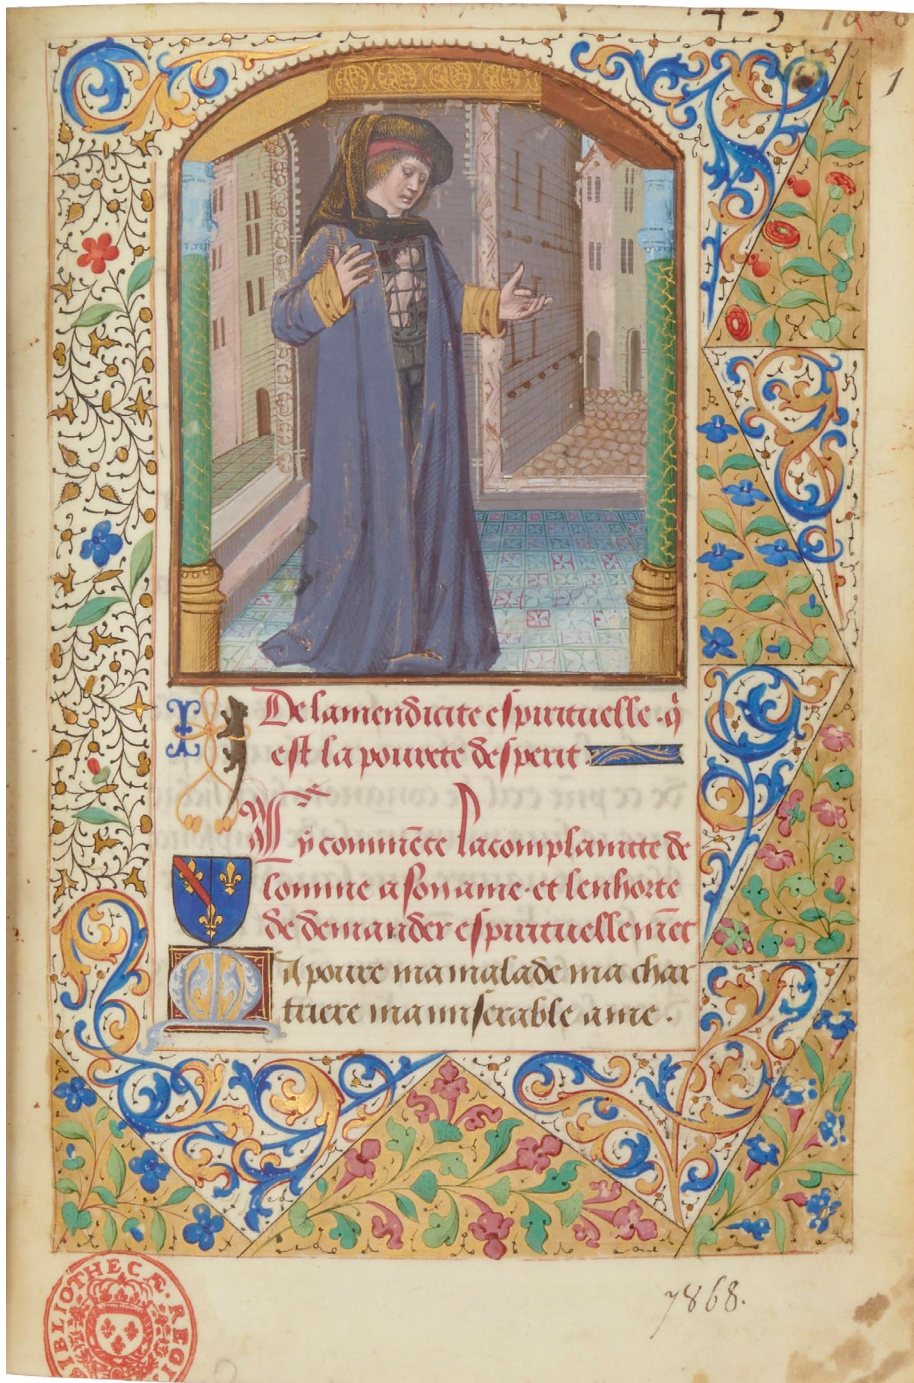 1
De la mendicite espirituelle. q̃
est la pourete desperit.
Cy commẽce la complainte de
lomme a son ame. et lenhorte
de demander espirituellemẽt
il poure ma malade ma char
triere ma miserable ame.
7868.
BIBLIOTHECÆ REGI